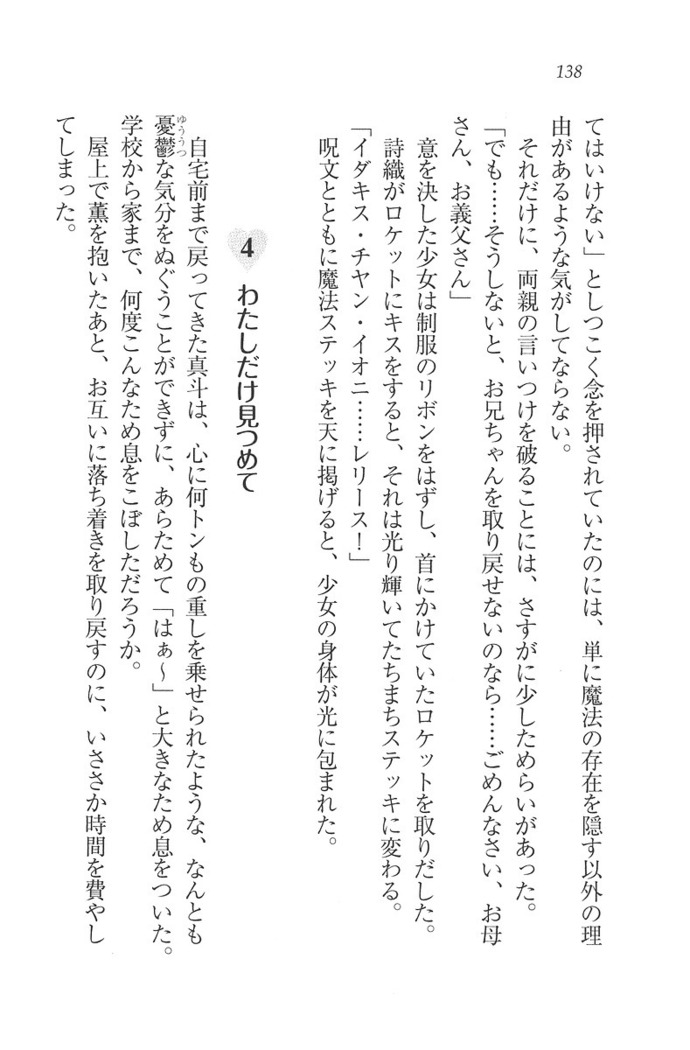 138
てはいけない」としつこく念を押されていたのには、単に魔法の存在を隠す以外の理
由があるような気がしてならない。
それだけに、両親の言いつけを破ることには、さすがに少しためらいがあった。
「でも……そうしないと、お兄ちゃんを取り戻せないのなら……ごめんなさい、お母
さん、お義父さん」
意を決した少女は制服のリボンをはずし、首にかけていたロケットを取りだした。
詩織がロケットにキスをすると、それは光り輝いてたちまちステッキに変わる。
「イダキス・チヤン・イオニ……レリース！」
呪文とともに魔法ステッキを天に掲げると、少女の身体が光に包まれた。
4 わたしだけ見つめて
自宅前まで戻ってきた真斗は、心に何トンもの重しを乗せられたような、なんとも
ゆううつ
憂鬱な気分をぬぐうことができずに、あらためて「はぁ～」と大きなため息をついた。
学校から家まで、何度こんなため息をこぼしただろうか。
屋上で薫を抱いたあと、お互いに落ち着きを取り戻すのに、いささか時間を費やし
てしまった。